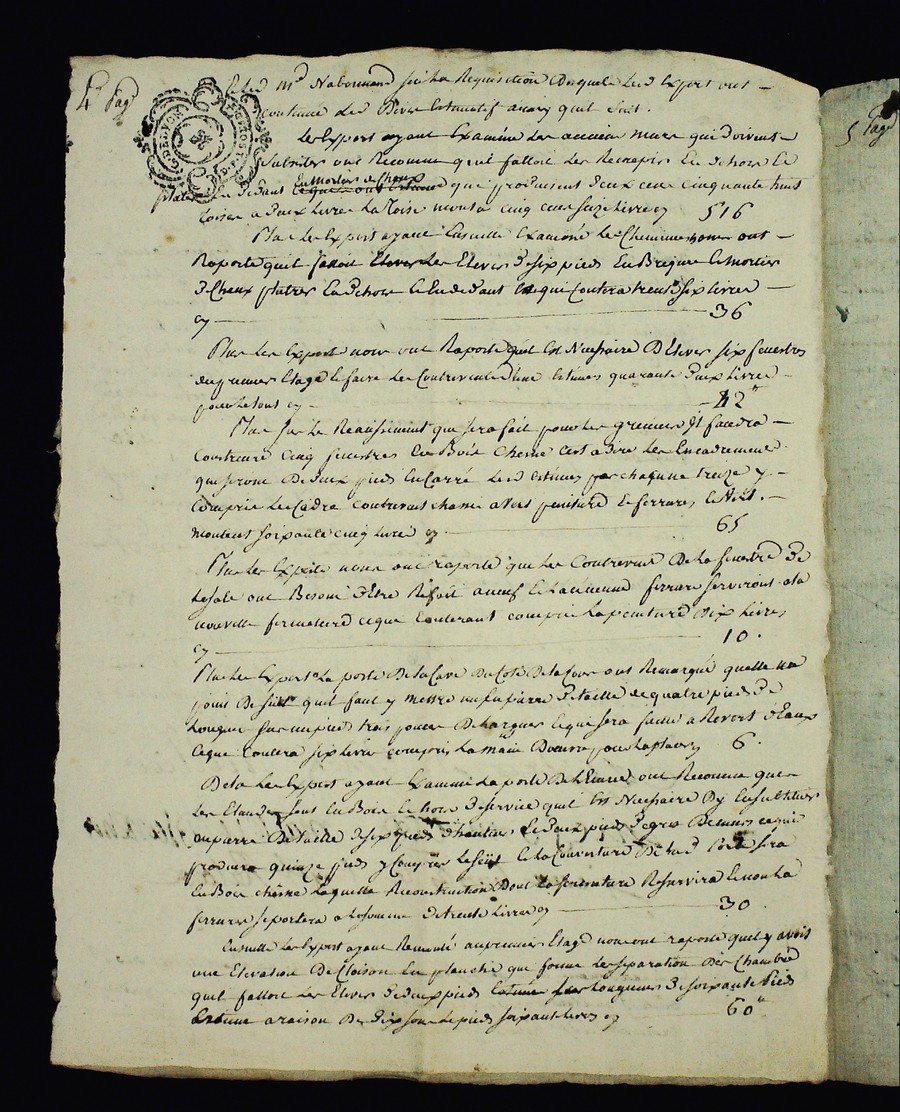 4e Page
5 Page
G. DE LYON
Et led. Mr Nabonnand sur la Requisition duquel lesd. Expert ont
continué led. Devis Estimatif ainsy quil suit.
Les Expert ayant Examiné les anciens murs qui doivent
Subsister ont Reconnu quil falloit les Recrepir En dehors Et
platrer En dedans En Mortier de Chaux que produisent deux cent cinquante huit
toises a deux Livres La toise monta cinq cent seize Livres cy 516
Plus les Expert ayant Ensuite Examiné les Cheminées nous ont
Raporté quil falloit Elever les Elever de six pieds En Brique Et Mortier
de Chaux platrer En dehors Et En dedans Ce qui Coutera trente six Livres
cy 36
Plus les Expert nous ont Raporté quil Est Necessaire D'Elever six fenestres
au premier Etage Et faire les Contrevents d'une Estimés quarante deux Livres
pour le tout cy 42"
Plus sur le que sera fait pour les greniers Il faudra
Construire Cinq fenestres En Bois Chesne C'est a dire les Encadrement
qui seront De deux pieds En Carré led. Estimés par chacune treize
Compris le Cadre Contrevent chassis a Vert peinture Et ferrures
montent soixante cinq Livres cy 65
Plus les Experts nous ont raporté que les Contrevent De la fenestre De
la Sale ont Besoin d'Etre Refait a neuf Et L'ancienne ferrure serviront a la
nouvelle fermeture ce que Couteront compris la peinture Dix Livres
cy 10.
Plus les Expert a La porte De la Cave Du Coté De la Cour ont Remarqué quelle na
point De suil quil faut y mettre un En pierre De taille de quatre pieds De
Longueur sur un pied trois pouces De Largeur Ce que sera faitte a Revers d'Eaux
Ceque Coutera six Livres compris la main Doeuvre pour la placer cy 6.
De la les Expert ayant Examiné La porte De L'Ecurie ont Reconnu que
Les sont En Bois Et hors De service quil Est Necessaire D'y En substituer
en pierre De taille De six pieds d'hauteur Et deux pieds De gros De murs ce qui
produira quinze pieds y Compris Le suil Et la Couverture De lad. Porte sera
En Bois chesne Laquelle Reconstruction Dont la fermeture Reservira Et non La
ferrure se portera a la somme De trente Livres cy 30.
Ensuitte les Expert ayant Remonté au premier Etage nous ont raporté quil y avoit
une Elevation De Cloison En planche que forme La separation Des Chambre
quil falloit les Elever De deux pieds sur Longueur De soixante Pieds
Estimé a raison De Dix sous Le pied soixante Livres cy 60"